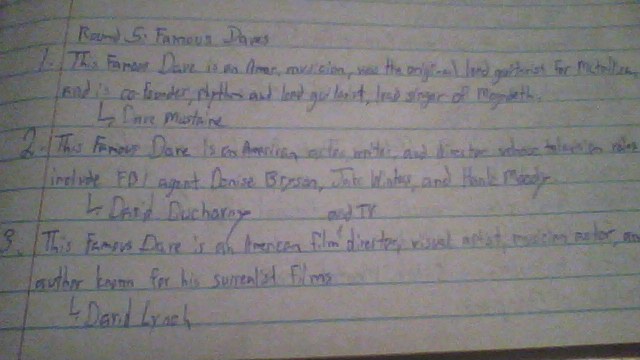 Round 5: Famous Daves
1. This Famous Dave is an Amer. musician, was the original lead guitarist for Metallica
and is co-founder, rhythm and lead guitarist, lead singer of Megadeth.
↳ Dave Mustaine
2. This Famous Dave is an American actor, writer, and director whose television roles
include FBI agent Denise Bryson, Jake Winters, and Hank Moody
↳ David Duchovny
and TV
3. This Famous Dave is an American film director, visual artist, musician, actor, and
author known for his surrealist films
↳ David Lynch